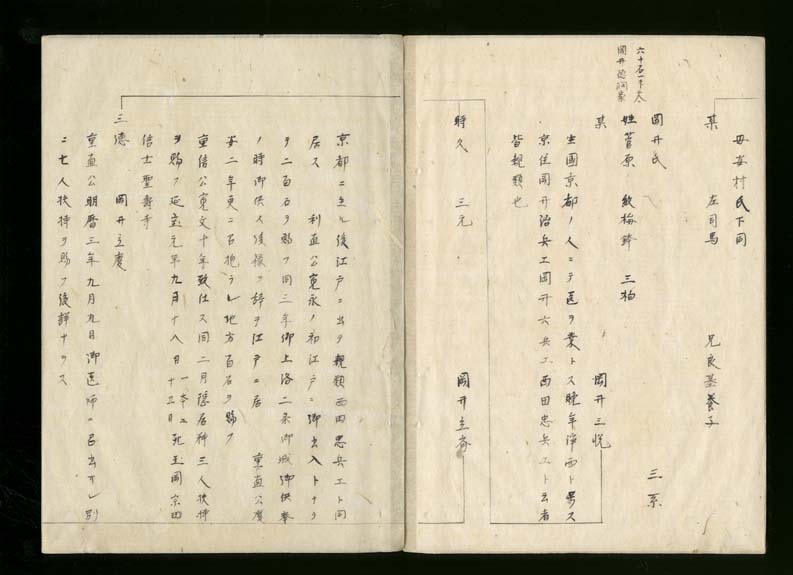 毋妄村氏下同
某　左司馬　兄良基養子
三系
六十石一斗
岡井
岡井氏
姓菅原　紋梅鉢　三柏
某　岡井三悦
生國京都ノ人ニテ医ヲ業トス晩年浄西ト号ス
京住岡井治兵エ岡井六兵エ西田忠兵エト云者
皆親類也
時久　三元　岡井立斎
京都ニ生ル後江戸ニ出テ親類西田忠兵エト同
居ス　利直公寛永ノ初江戸ニ御出入トナリ
テ二百石ヲ賜フ同三年御上洛二条御城御供奉
ノ時御供人後様ヲ辞ヲ江戸ニ居　重直公慶
安二年更ニ召抱ラレ地方百石ヲ賜フ
重信公寛文十年致仕ス同二月隠居料三人扶持
ヲ賜フ延宝元年九月十八日一本ニ十三日死玉岡宗田
信士聖寿寺
三徳　岡井立慶
重直公明暦三年九月九日御医師ニ召出サレ別
ニ七人扶持ヲ賜フ後詳ナラス